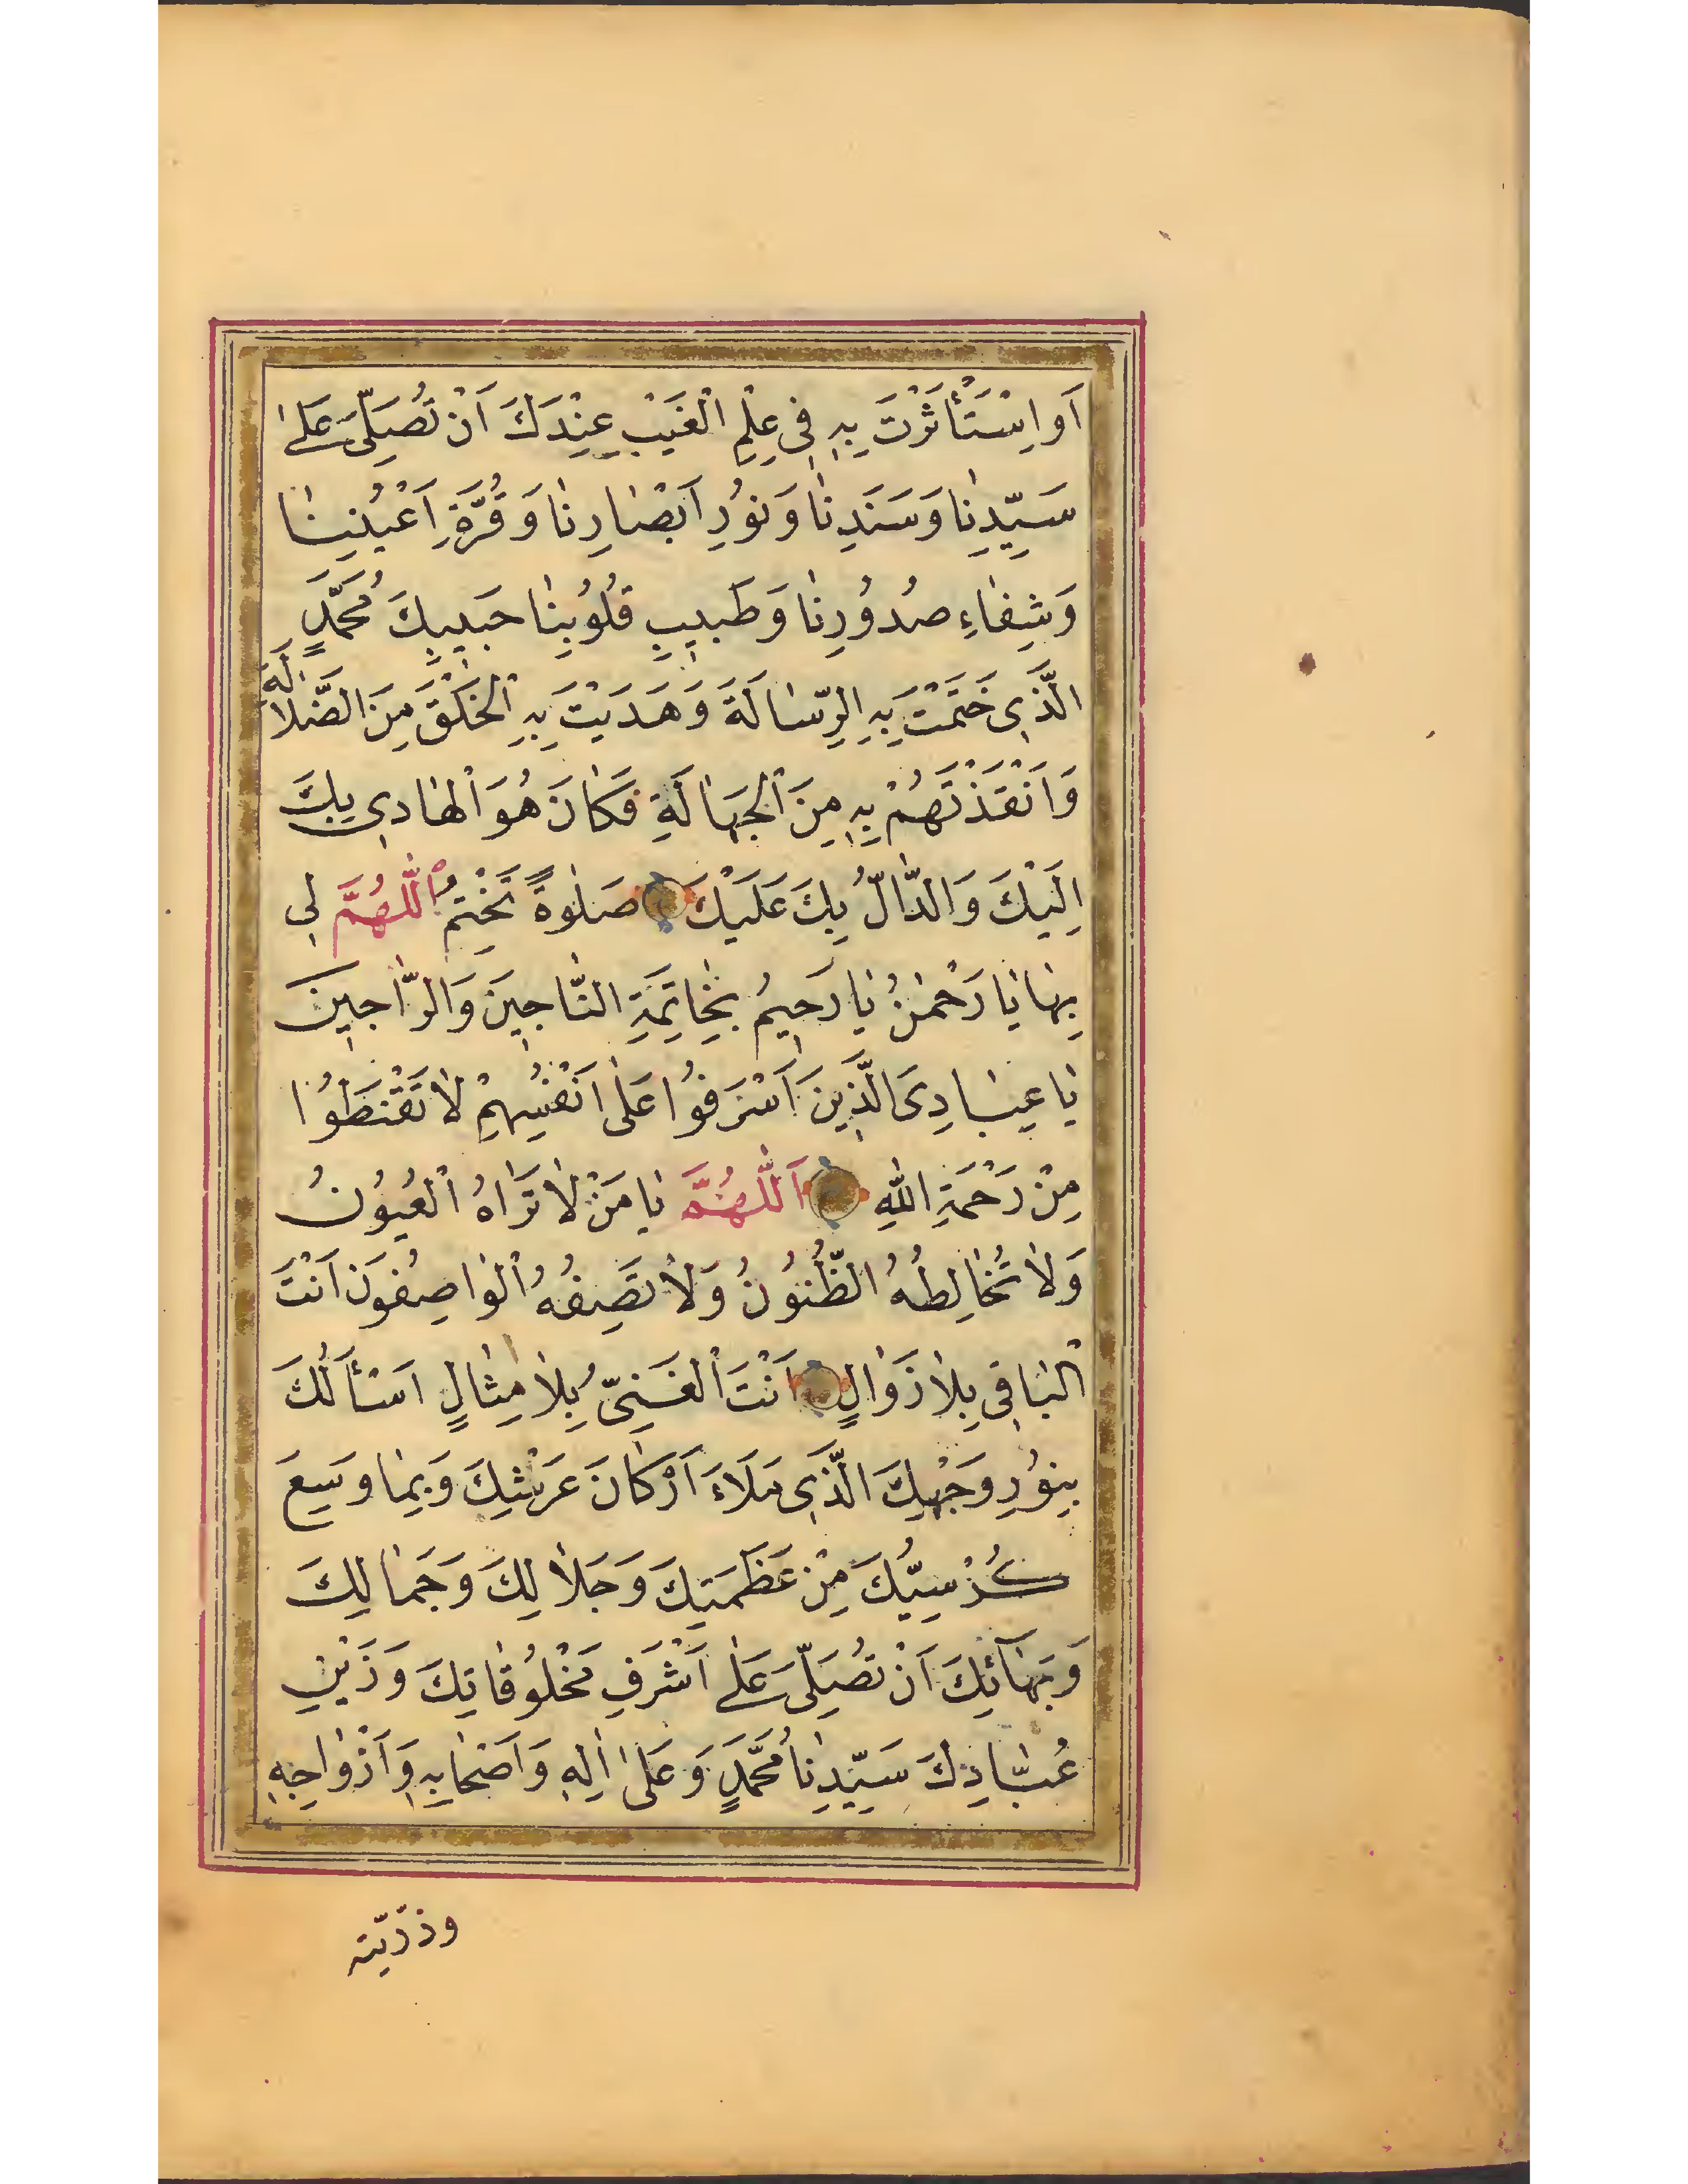 اَوِ اسْتَأْثَرْتَ بِهِ فِى عِلْمِ الْغَيْبِ عِنْدَكَ اَنْ تُصَلِّىَ عَلٰى
سَيِّدِنَا وَسَنَدِنَا وَنُورِ اَبْصَارِنَا وَقُرَّةِ اَعْيُنِنَا
وَشِفَاءِ صُدُورِنَا وَطَبِيبِ قُلُوبِنَا حَبِيبِكَ مُحَمَّدٍ
الَّذِى خَتَمْتَ بِهِ الرِّسَالَةَ وَهَدَيْتَ بِهِ الْخَلْقَ مِنَ الضَّلَالَةِ
وَاَنْقَذْتَهُمْ بِهِ مِنَ الْجَهَالَةِ فَكَانَ هُوَ الْهَادِى بِكَ
اِلَيْكَ وَالدَّالُّ بِكَ عَلَيْكَ صَلٰوةً تَخْتِمُ اَللّٰهُمَّ لِى
بِهَا يَا رَحْمٰنُ يَا رَحِيمُ بِخَاتِمَةِ النَّاجِينَ وَالرَّاجِينَ
يَا عِبَادِىَ الَّذِينَ اَسْرَفُوا عَلٰى اَنْفُسِهِمْ لَا تَقْنَطُوا
مِنْ رَحْمَةِ اللّٰهِ اَللّٰهُمَّ يَا مَنْ لَا تَرَاهُ الْعُيُونُ
وَلَا تُخَالِطُهُ الظُّنُونُ وَلَا تَصِفُهُ الْوَاصِفُونَ اَنْتَ
الْبَاقِى بِلَا زَوَالٍ اَنْتَ الْغَنِىُّ بِلَا مِثَالٍ اَسْأَلُكَ
بِنُورِ وَجْهِكَ الَّذِى مَلَاءَ اَرْكَانَ عَرْشِكَ وَبِمَا وَسِعَ
كُرْسِيُّكَ مِنْ عَظَمَتِكَ وَجَلَالِكَ وَجَمَالِكَ
وَبَهَائِكَ اَنْ تُصَلِّىَ عَلٰى اَشْرَفِ مَخْلُوقَاتِكَ وَزَيْنِ
عُبَّادِكَ سَيِّدِنَا مُحَمَّدٍ وَعَلٰى اٰلِهِ وَاَصْحَابِهِ وَاَزْوَاجِهِ
وذرّيّته